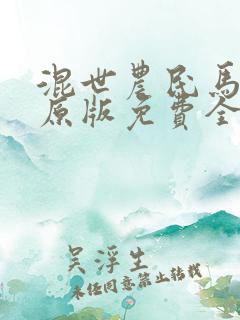 混世農民馬
原版免費全
吴浮生
未经同意禁止转载